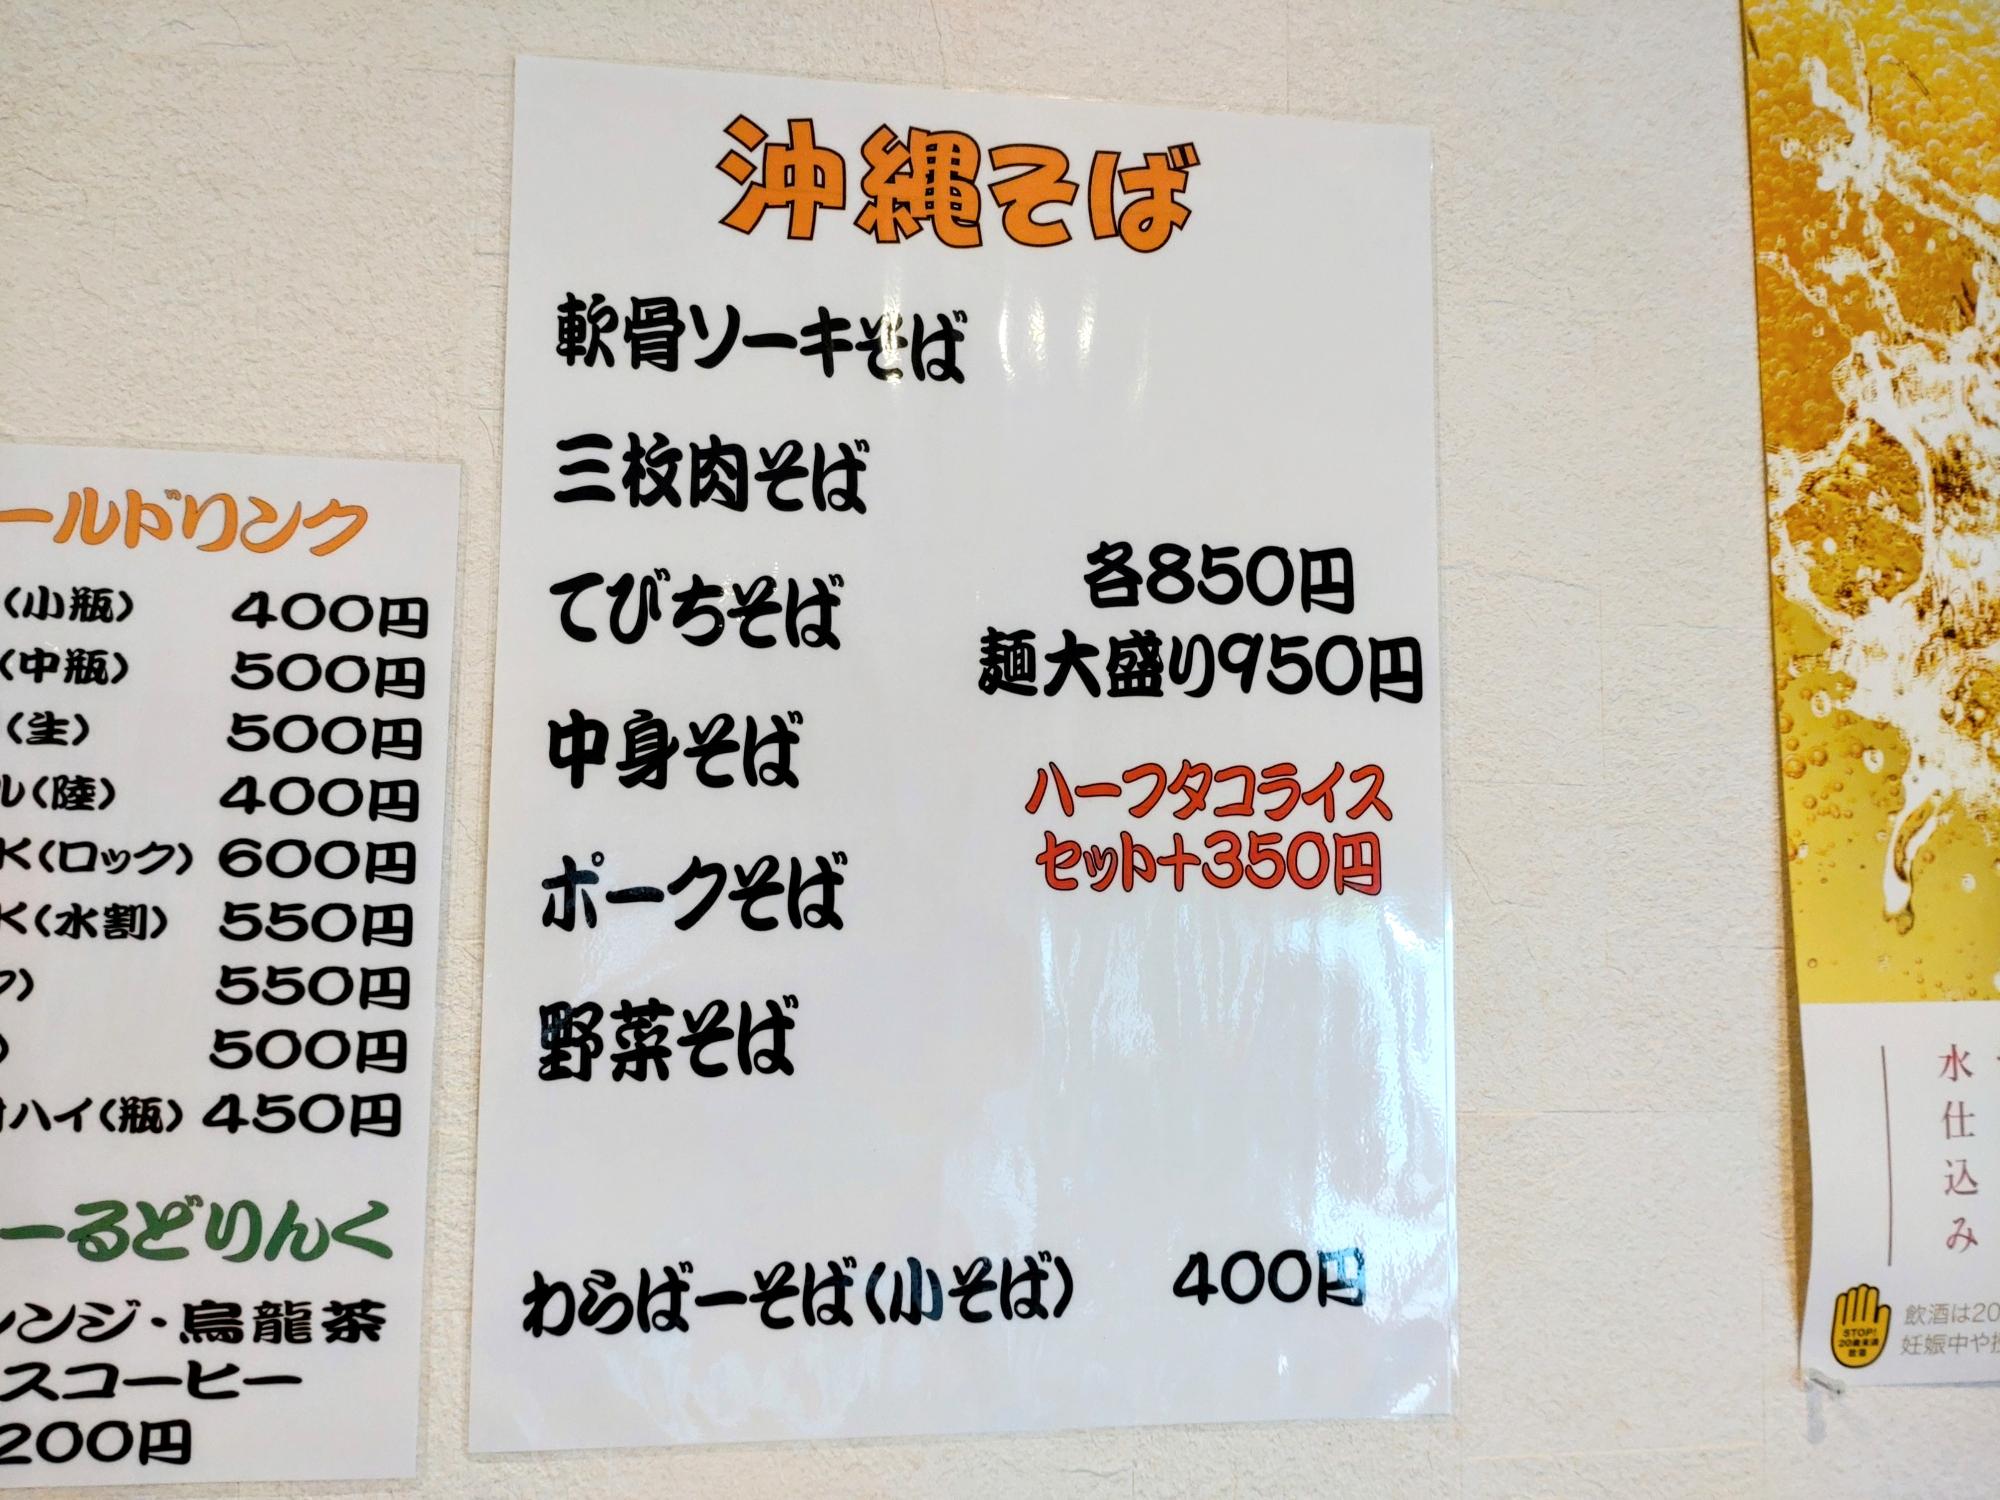 沖縄そば
軟骨ソーキそば
三枚肉そば
てびちそば
中身そば
ポークそば
野菜そば
各850円
麺大盛り950円
ハーフタコライス
セット+350円
わらばーそば(小そば) 400円
ールドリンク
(小瓶) 400円
(中瓶) 500円
(生) 500円
ル(陸) 400円
K(ロック) 600円
K(水割) 550円
ク) 550円
) 500円
ハイ(瓶) 450円
ーるどりんく
レンジ・烏龍茶
スコーヒー
200円
水仕込み
STOP!
20歳未満
飲酒
飲酒は20
妊娠中や授